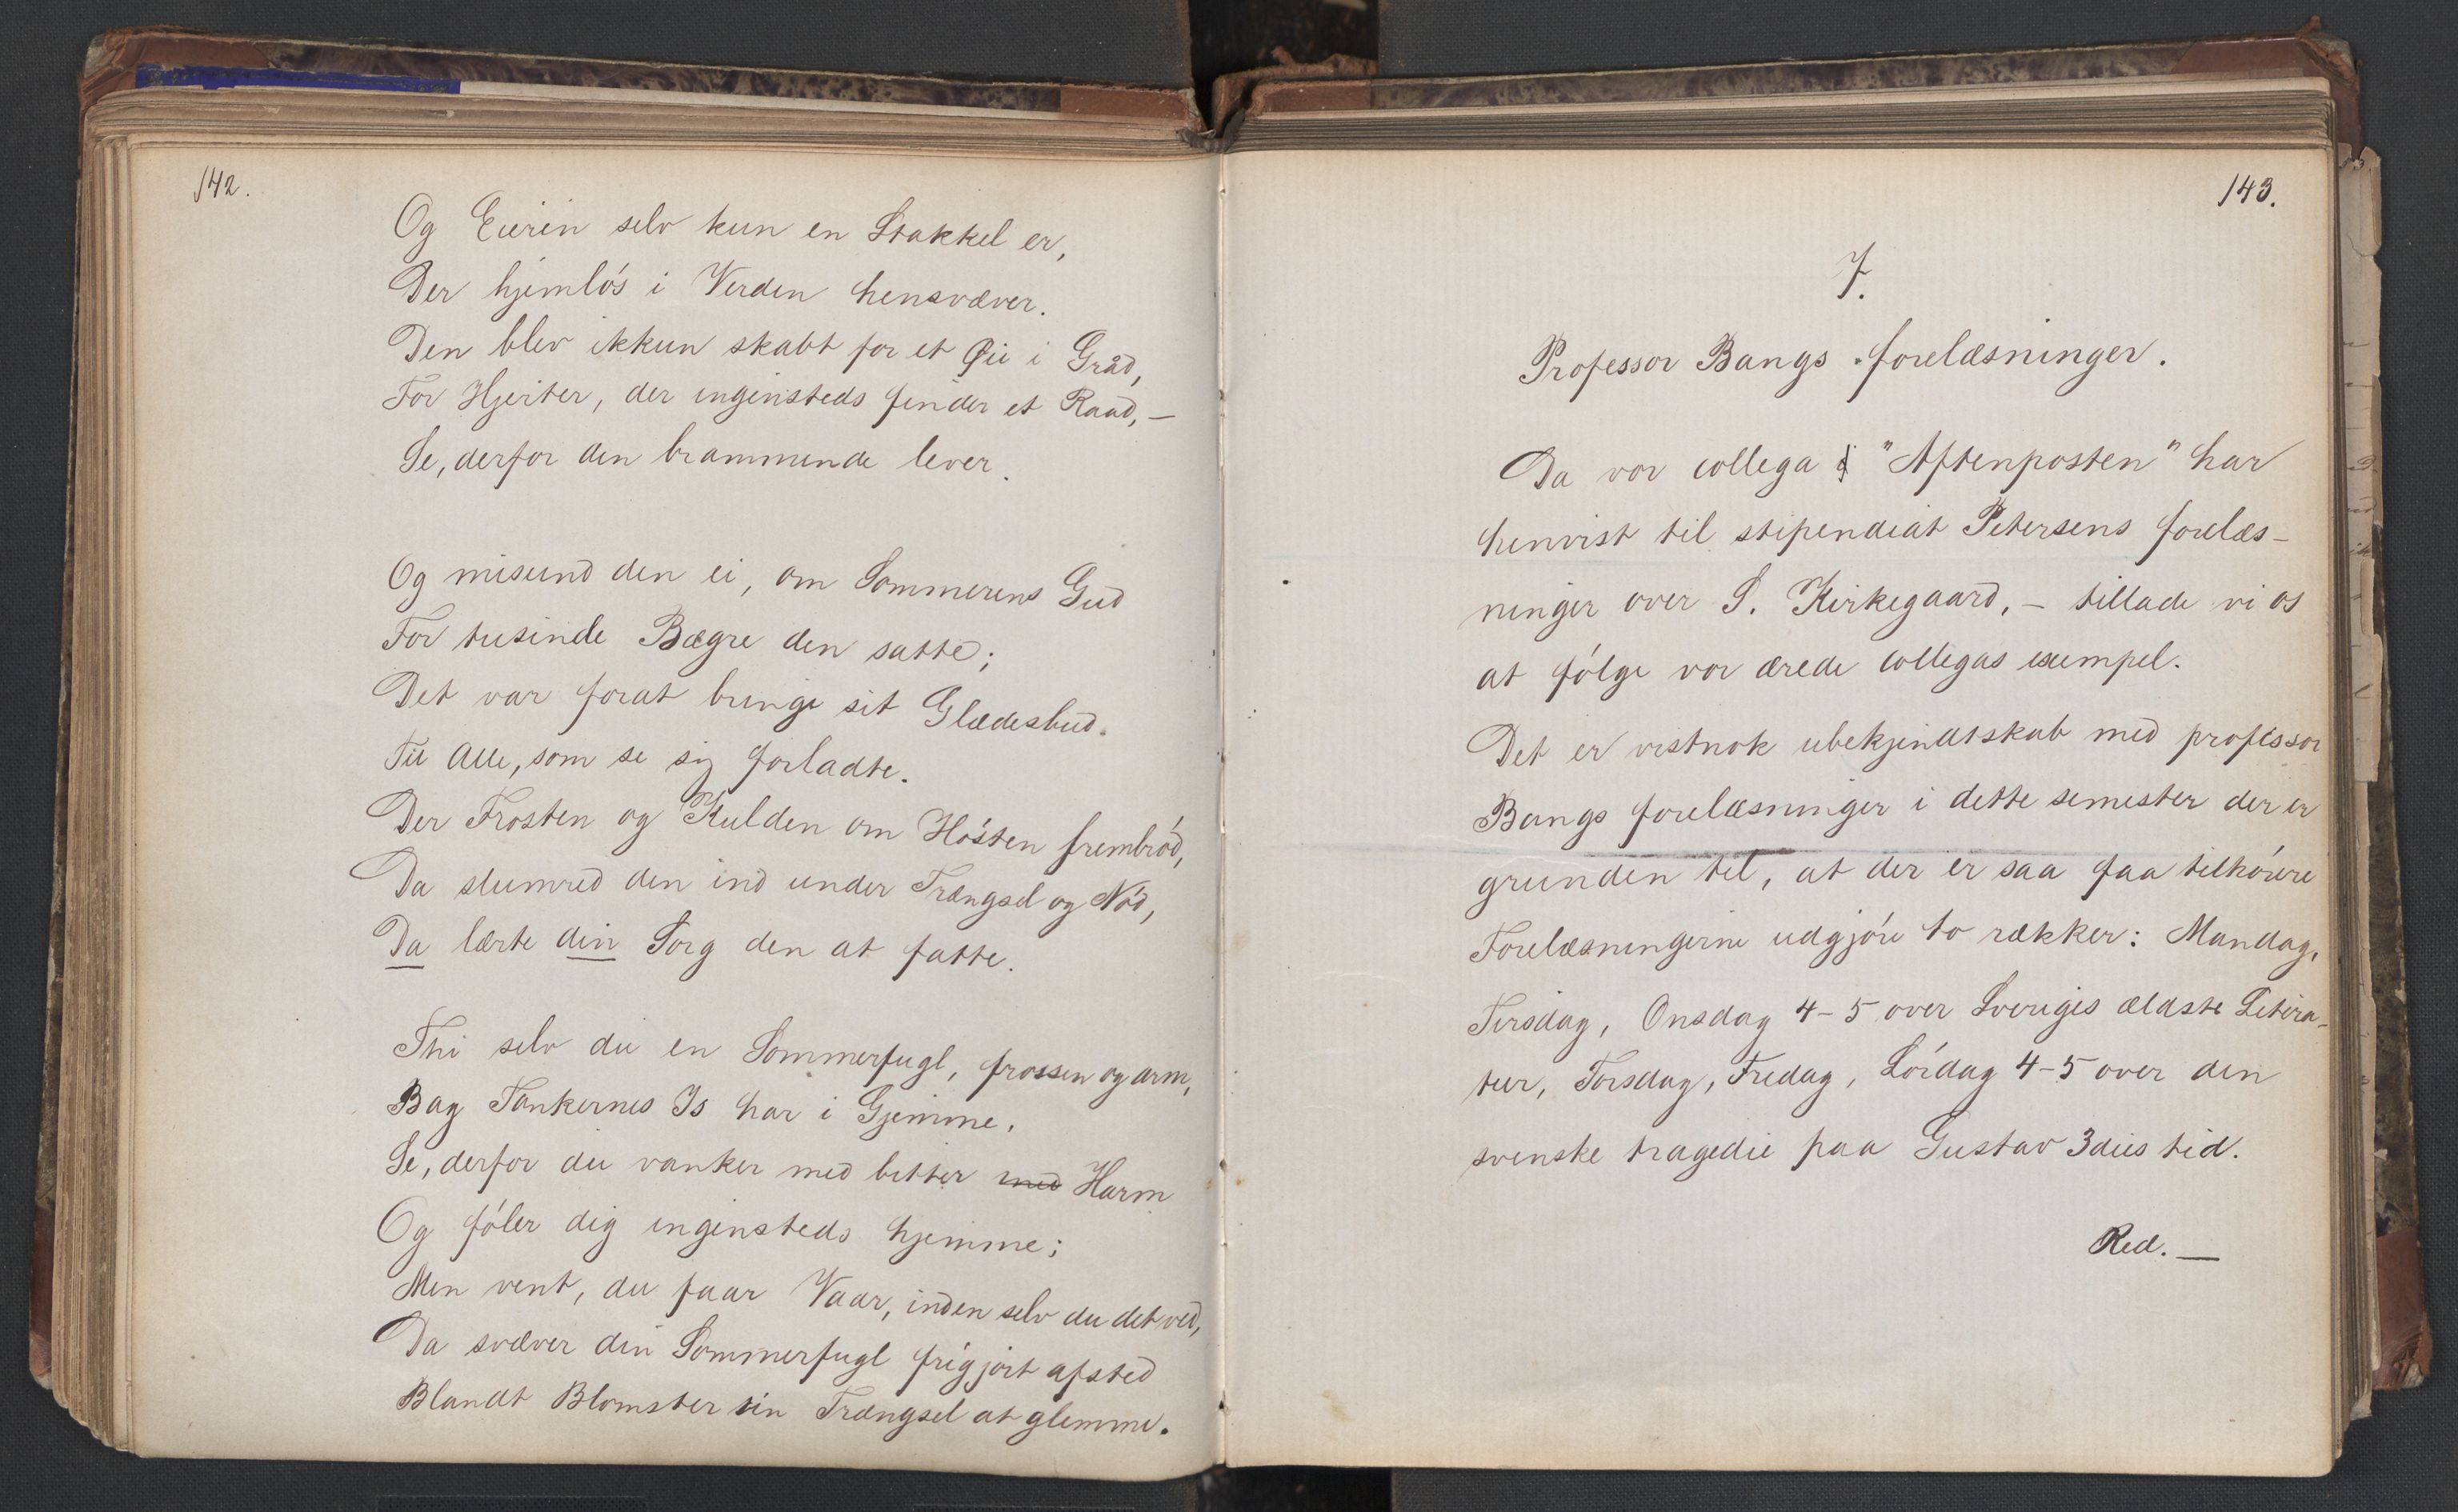 142.
Og Eierin selv kun en Stakkel er,
Der hjemløs i Verden hensvæver.
Den blev ikkun skabt for et Øie i Gråd,
For Hjerter, der ingensteds finder et Raad, –
Se, derfor den brammende lever.
Og misund den ei, om Sommerens Gud
For tusinde Bægre den satte;
Det var forat bringe sit Glædesbud.
Til Alle, som se sig forladte.
Der Frosten og Kulden om Høsten frembrød,
Da slumred den ind under Trængsel og Nød,
Da lærte din Sorg den at fatte.
Thi selv du en Sommerfugl, frossen og arm,
Bag Tankernes Is har i Gjemme.
Se, derfor du vanker med bitter med Harm
Og føler dig ingensteds hjemme;
Men vent, du faar Vaar, inden selv du det ved,
Da svæver din Sommerfugl frigjort afsted
Blandt Blomster sin Trængsel at glemme.
143.
7.
Professor Bangs forelæsninger.
Da vor collega i "Aftenposten" har
henvist til stipendiat Petersens forelæs-
ninger over S. Kirkegaard, – tillade vi os
at følge vor ærede collegas exempel.
Det er vistnok ubekjendtskab med professor
Bangs forelæsninger i dette semester der er
grunden til, at der er saa faa tilhørere
Forelæsningerne udgjøre to rækker: Mandag,
Tirsdag, Onsdag 4–5 over Sveriges ældste Litera-
tur, Torsdag, Fredag, Lørdag 4–5 over den
svenske tragedie paa Gustav 3dies tid.
Red. —